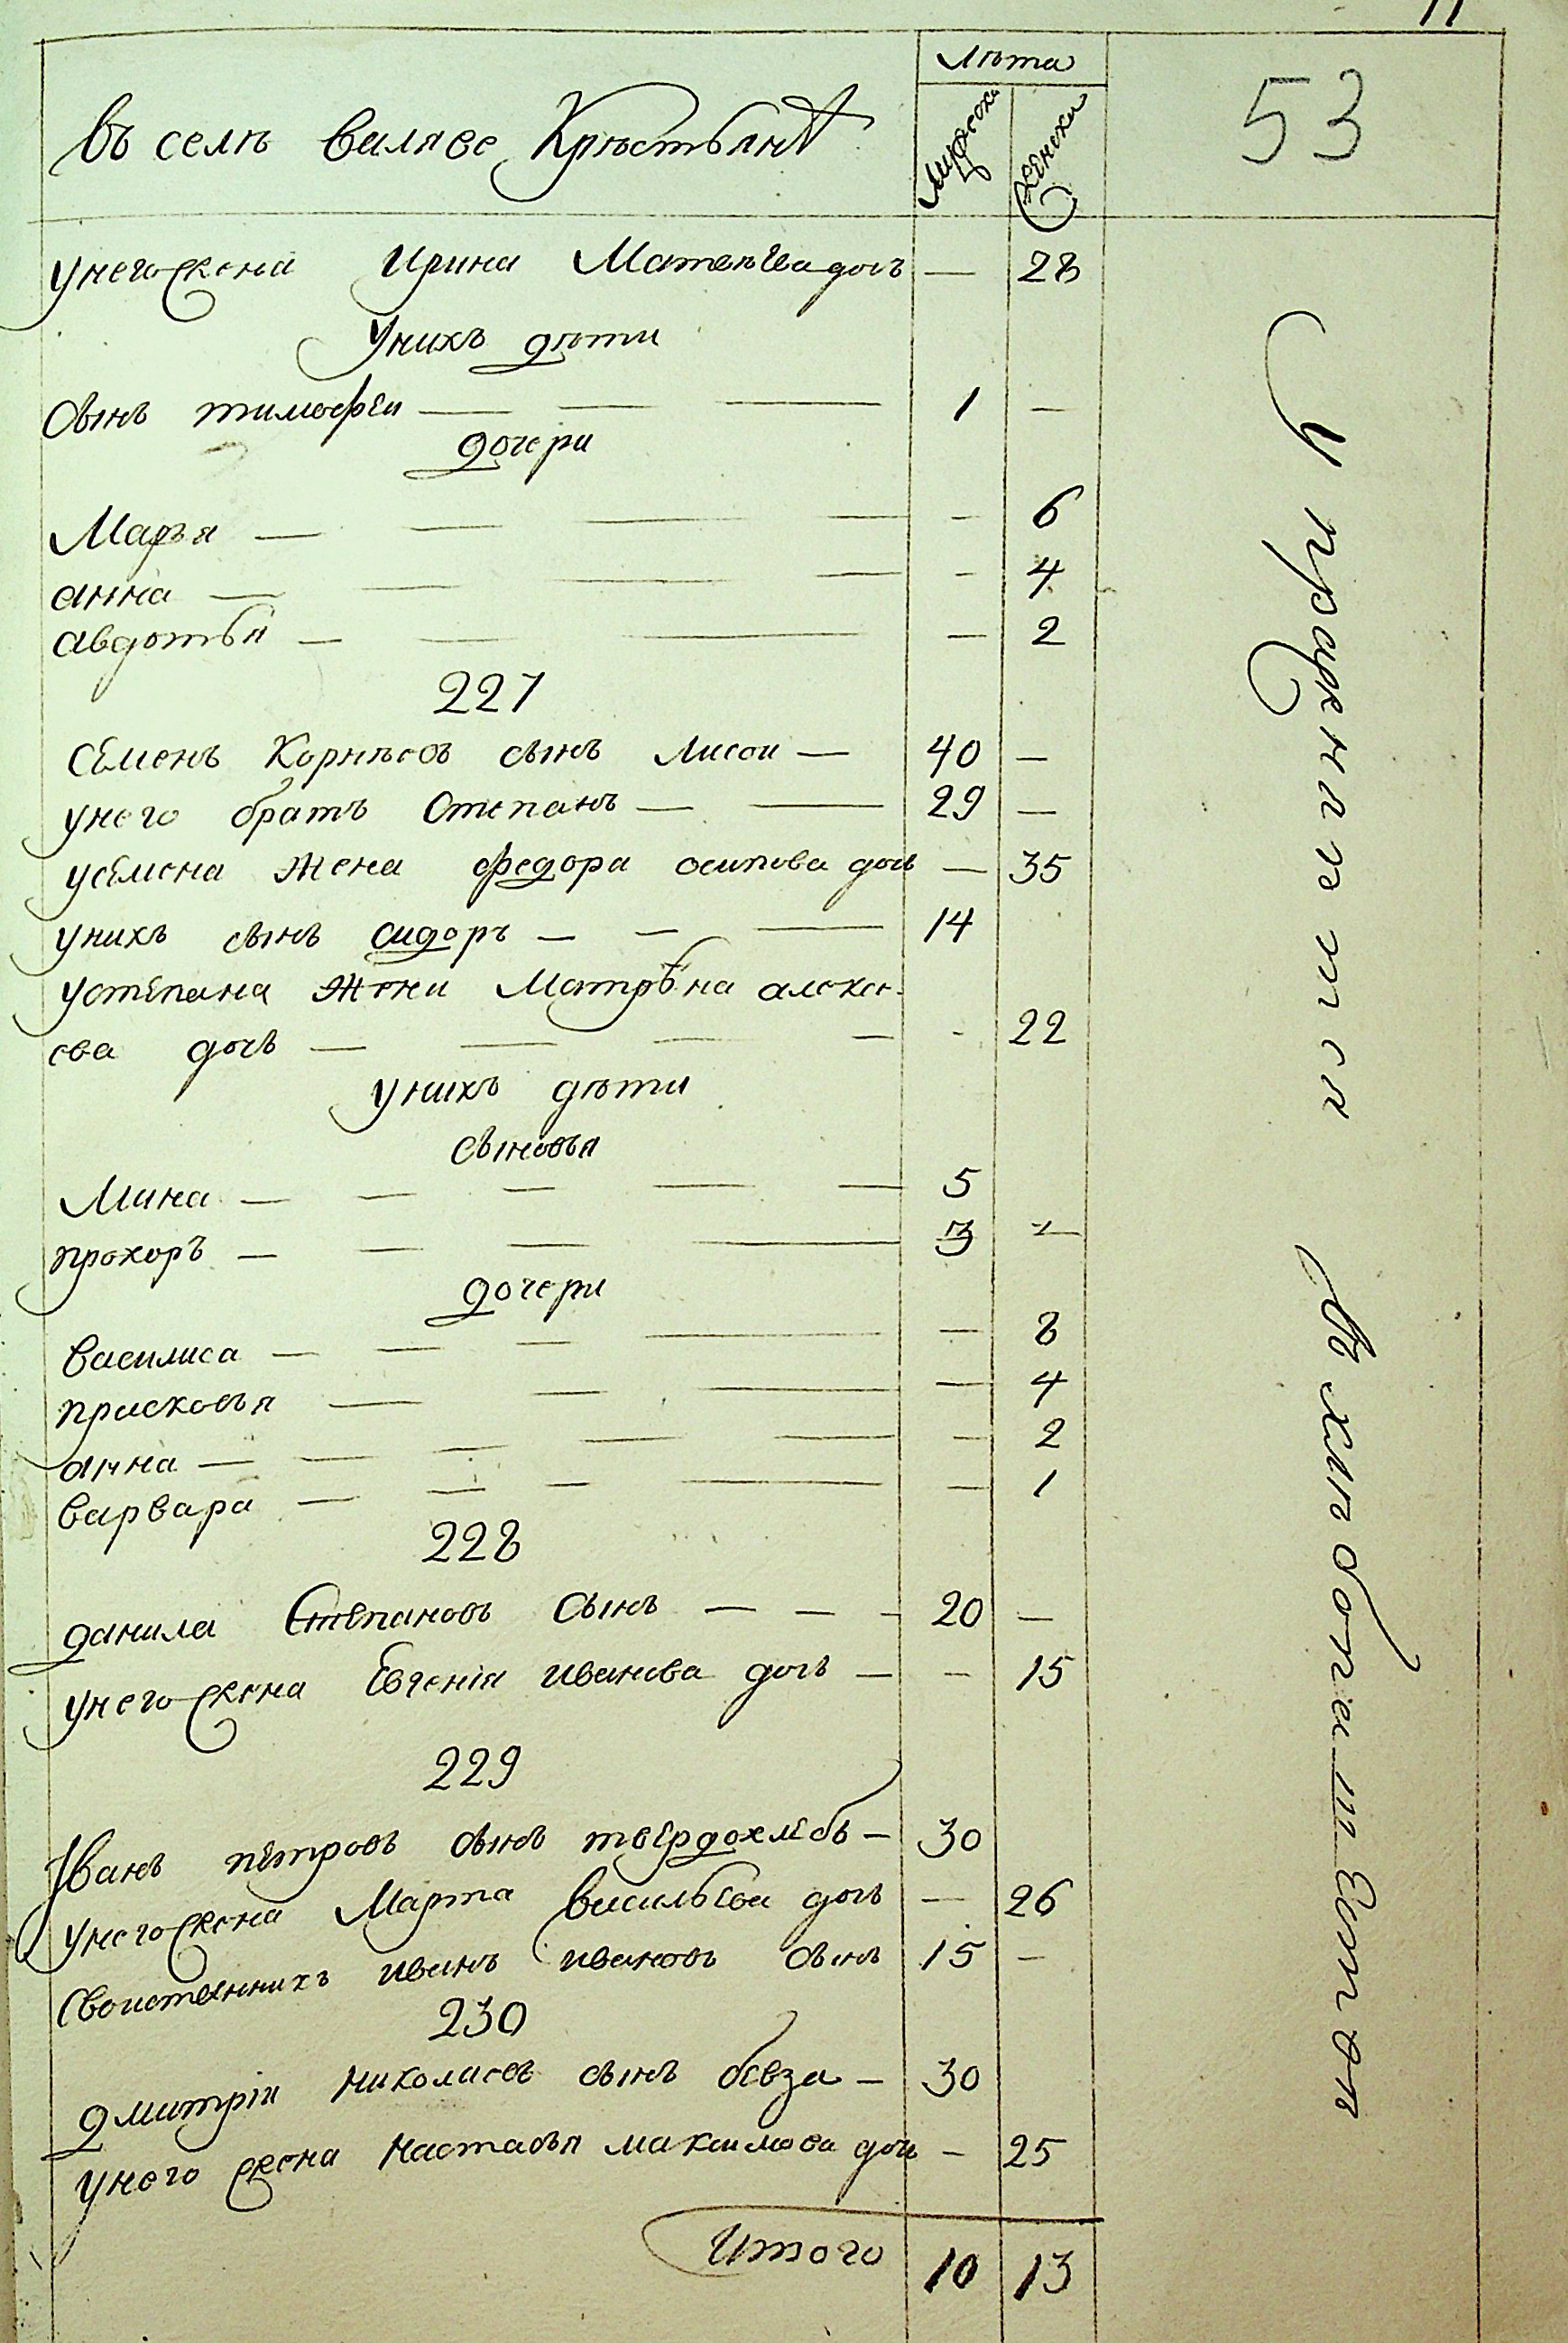 11
53
Лѣта
Мужеска
женска
Въ селѣ Крѣстьянѣ
У него жена Ирина Матвѣева дочь — 28
У нихъ дѣти
Сынъ тимофеи — — — 1 —
дочери
Марья — — — — - 6
анна — — — — - 4
авдотья — — — — 2
227
Семенъ Корнѣевъ сынъ Лисои — 40 —
у него братъ Степанъ — — 29 —
у семена жена федора осипова дочь — 35
у нихъ сынъ сидоръ — — — 14
у степана жена Матрена алексе-
ева дочь — — — — - 22
у нихъ дѣти
сыновья
Мина — — — — — 5
прохоръ — — — — 3 —
дочери
василиса — — — — — 8
присковья — — — — 4
анна — — — — — — 2
варвара — — — — — 1
228
данила Степановъ Сынъ — — - 20 —
у него жена Евгенія иванова дочь — — 15
229
Иванъ петровъ сынъ твердохлебъ — 30
у него жена Марта васильева дочь — 26
Своиственникъ иванъ ивановъ сынъ 15 —
230
дмитріи николаевъ сынъ бевза — 30
у него жена настасья максимова дочь — 25
Итого 10 13